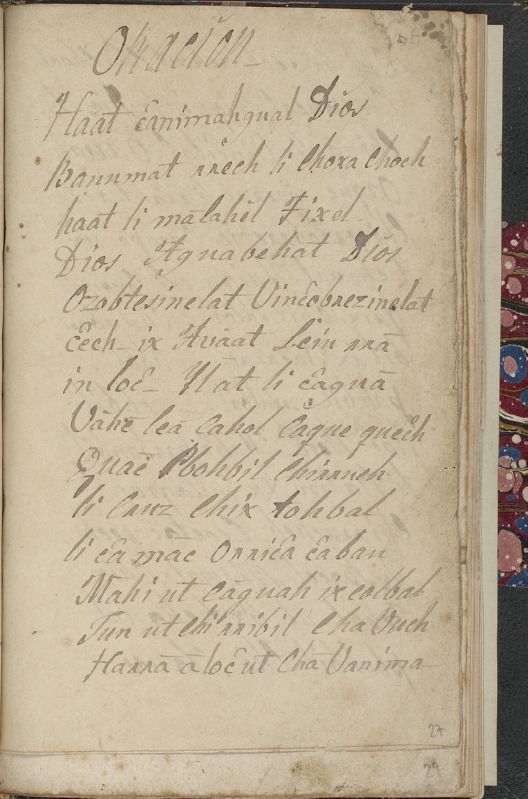 Oracion
Haat cânimahqual Dios
Banumat rrêch li Choxa Choch
haat li mâlahêl Tixel.
Dios Aguabehat Dios
Ozobtesinelat Vincobrezinelat
Cêch ix Avâat Lein rrâ
in locê Hat li câguâ
Vâhê lea Cahol Câgue quêch
Quaê Pbohbil Chirruch
li Cruz Chix tohbal
li câ mâc Orricâ câban
Mahi ut Câguah ix colbal
Tun ut Chirribil Cha Vuch
Harrâ â locêut Cha Vanima
27
29